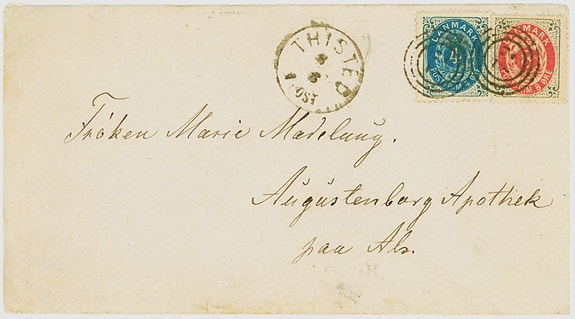 THISTED
8
6
1 POST
DANMARK
4
POSTFRIM 4 ØRE
DANMARK
POSTFRIM 8 ØRE
Fröken Marie Madelung.
Augustenborg Apothek
paa Als.